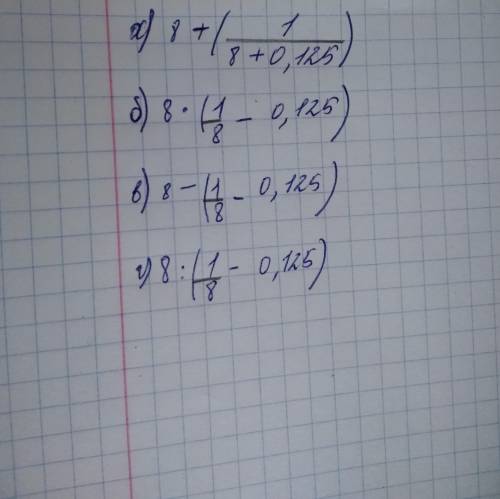 а) 8 + (1/(8 + 0,125))
б) 8 · (1/8 - 0,125)
в) 8 - (1/8 - 0,125)
г) 8 : (1/8 - 0,125)